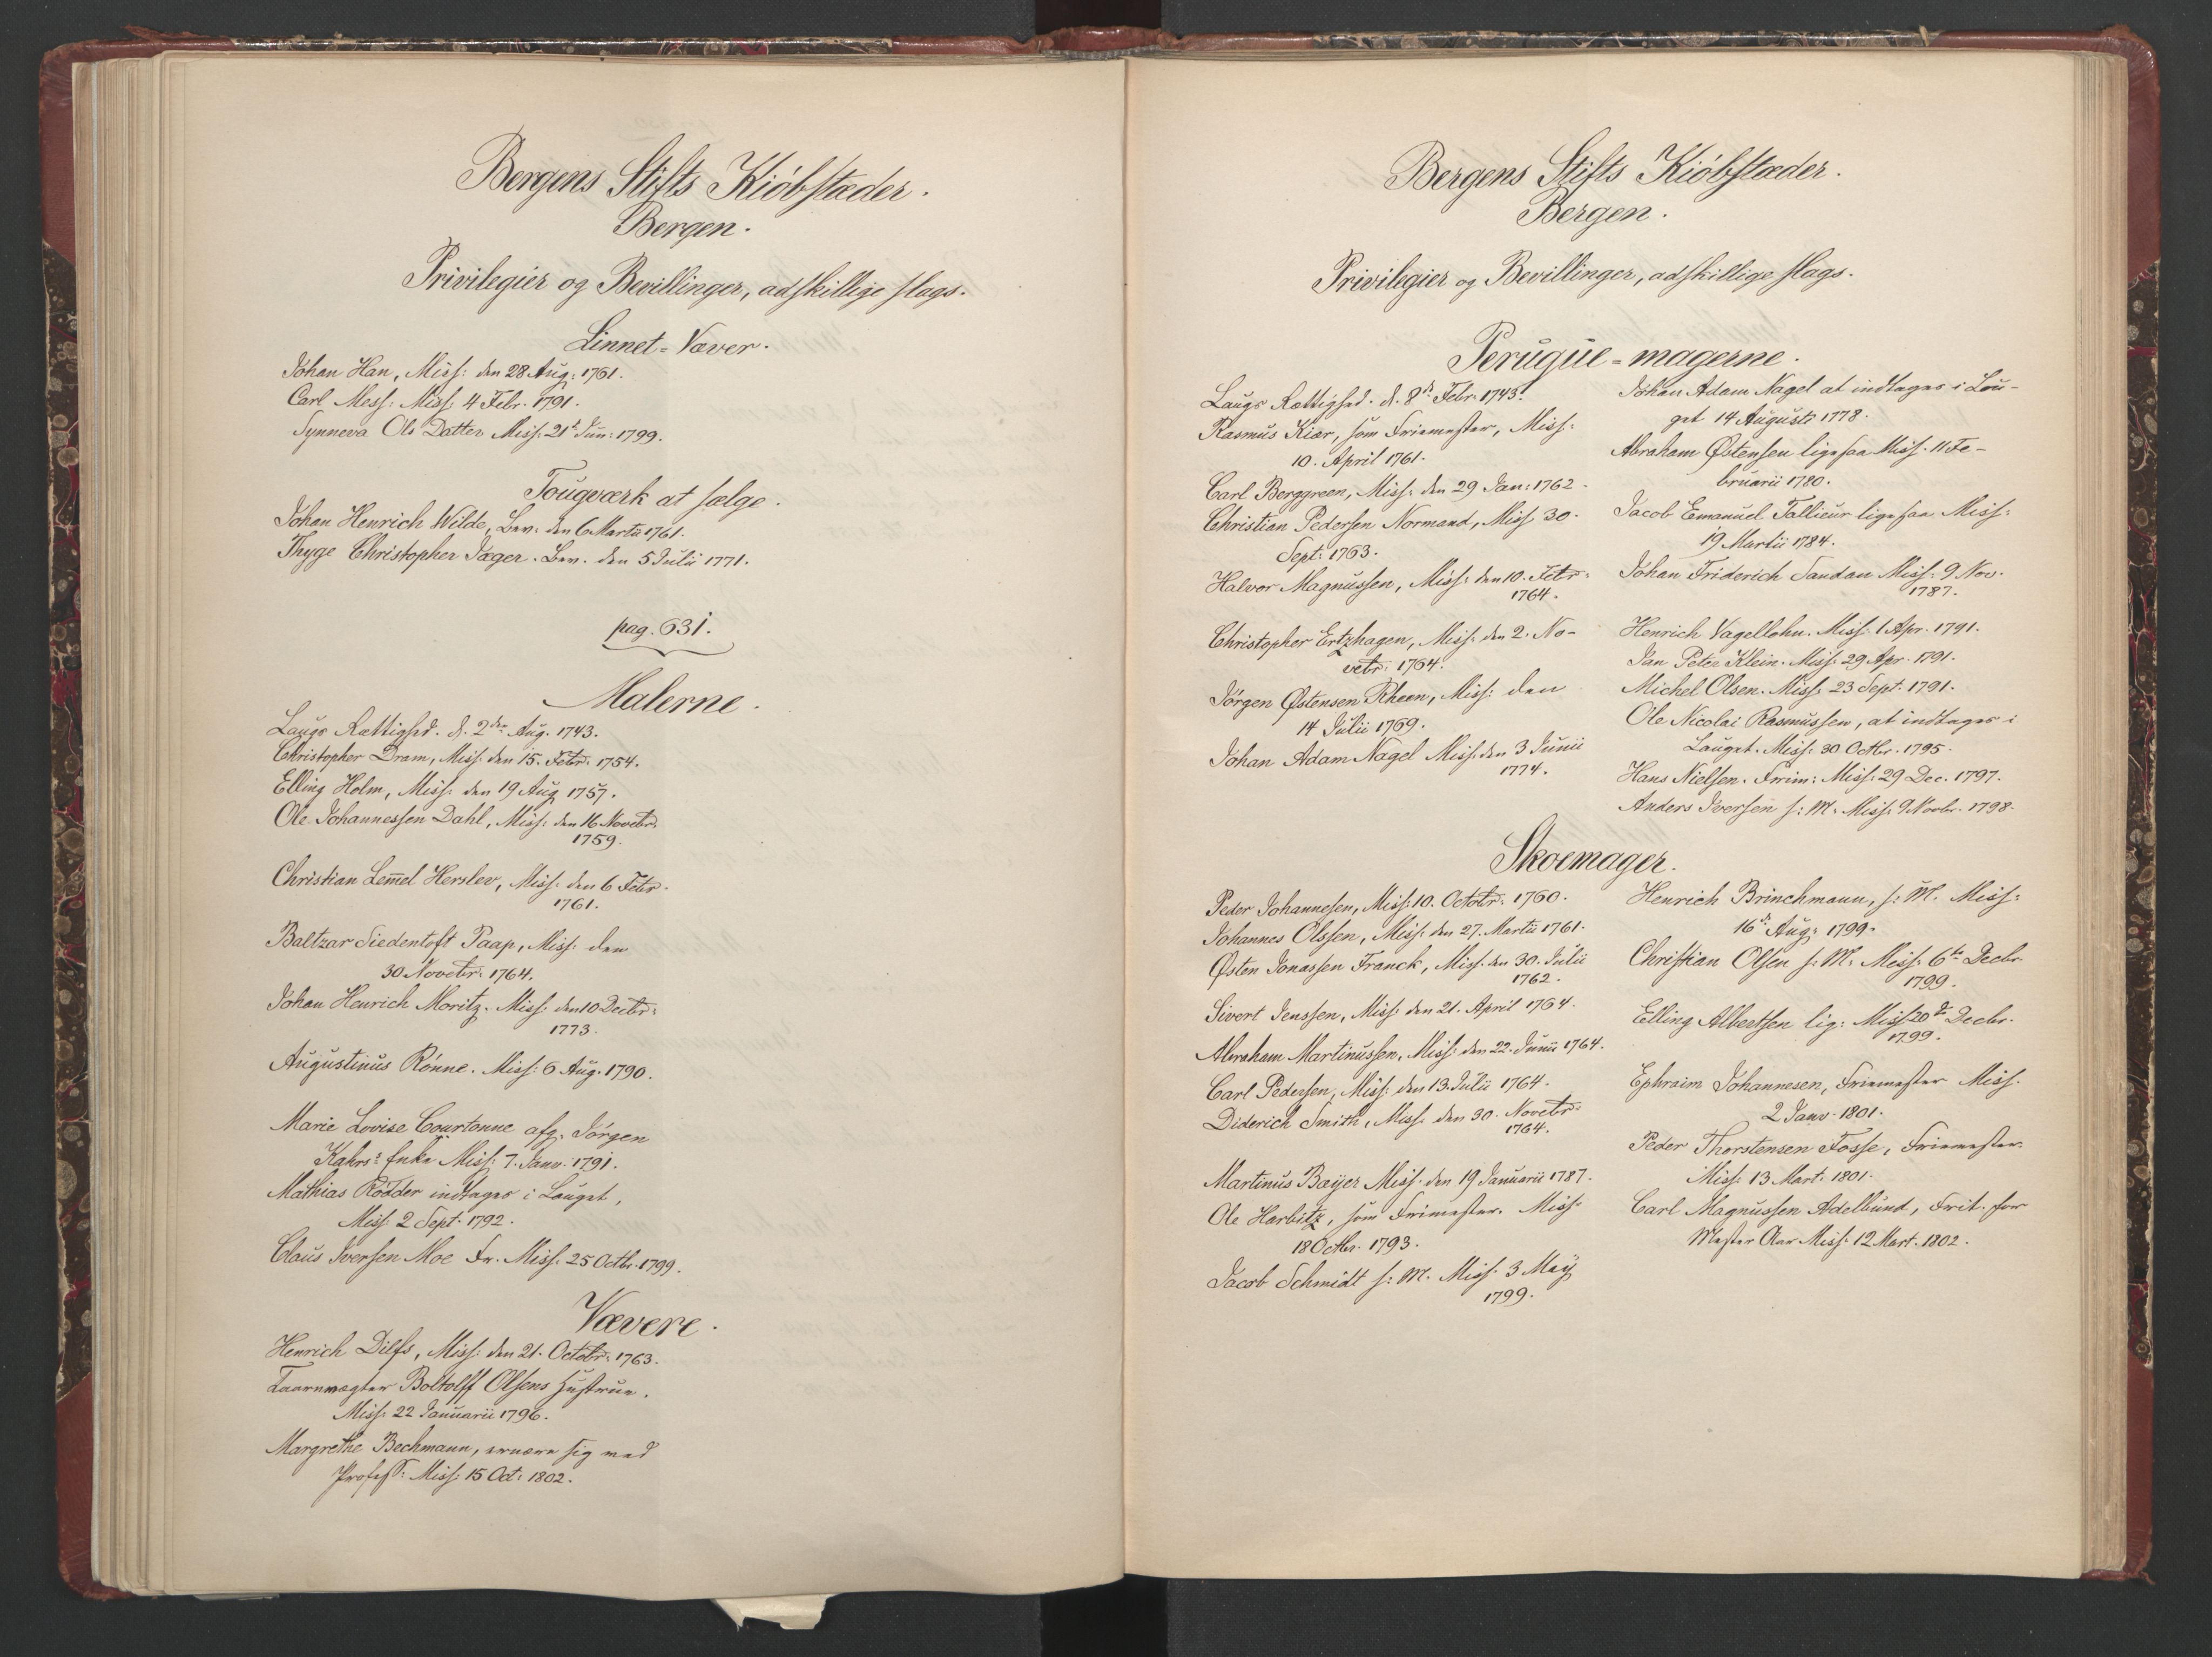 Bergens Stifts Kióbstæder.
Bergen.
Privilegier og Bevillinger, adskillige slags.
Linnet-Væver.
Johan Han, Miss: den 28 Aug: 1761.
Carl Mess: Miss: 4 Febr. 1791.
Synneva Ols Datter Miss: 21d Jun: 1799.
Tougværk at sælge.
Johan Henrich Wilde, Bev: den 6 Martii 1761.
Thyge Christopher Jæger. Bev. den 5 Julii 1771.
pag. 631.
Malerne.
Laugs Rettighed. d. 2den Aug. 1743.
Christopher Dram, Miss: den 15. Febr: 1754.
Elling Holm, Miss: den 19 Aug 1757.
Ole Johannessen Dahl, Miss: den 16 Novebr:
1759.
Christian Lem̅el Herslev, Miss: den 6 Febr.
1761.
Baltzar Siedentoft Paap, Miss: den
30 Novebr: 1764.
Johan Henrich Moritz. Miss: den 10 Decbr:
1773.
Augustinus Rónne. Miss: 6 Aug. 1790.
Marie Lovise Courtonne afg. Jórgen
Kahrs: Enke Miss: 7. Janv. 1791.
Mathias Rödder indtages i Lauget,
Miss: 2 Sept. 1792.
Claus Iversen Moe Fr. Miss: 25 Octbr. 1799.
Vævere.
Henrich Dilfs, Miss: den 21. Octobr: 1763.
Taarnvægter Boltolff Olsens Hustrue.
Miss: 22 Januarii 1796.
Margrethe Bechmann, ernære sig med
Profess: Miss: 15 Oct: 1802.
Bergens Stifts Kióbstæder.
Bergen.
Privilegier og Bevillinger, adskillige slags.
Peruque-magerne.
Laugs Rettighed. d. 8de Febr. 1743.
Rasmus Kiær, som Friemester, Miss:
10. April 1761.
Carl Berggreen, Miss: den 29 Jan: 1762.
Christian Pedersen Normand, Miss 30.
Sept: 1763.
Halvor Magnussen, Miss: den 10. Febr:
1764.
Christopher Ertzhagen, Miss: den 2. No-
vebr: 1764.
Jórgen Østensen Rheen, Miss: den
14 Julii 1769.
Johan Adam Nagel Miss: den 3 Junii
1774.
Johan Adam Nagel at indtages i Lau-
get 14 Augusti 1778.
Abraham Østensen ligesaa Miss. 11 Fe-
bruarii 1780.
Jacob Emanuel Tallieur ligesaa Miss:
19 Martii 1784.
Johan Friderich Sandau Miss: 9 Nov.
1787.
Henrich Vagellohn. Miss: 1 Apr. 1791.
Jan Peter Klein. Miss: 29 Apr. 1791.
Michel Olsen. Miss: 23 Sept. 1791.
Ole Nicolai Rasmussen, at indtages i
Lauget. Miss: 30 Octbr. 1795.
Hans Nielsen. Frim: Miss: 29 Dec. 1797.
Anders Iversen f: M: Miss: 9 Novbr. 1798.
Skoemager.
Peder Johannesen, Miss: 10. Octobr: 1760.
Johannes Olssen, Miss: den 27. Martii 1761.
Østen Jonassen Franck, Miss: den 30. Julii
1762.
Sivert Jenssen, Miss: den 21. April 1764.
Abraham Martinussen, Miss: den 22. Junii 1764.
Carl Pedersen, Miss: den 13. Julii 1764.
Diderich Smith, Miss: den 30. Novebr:
1764.
Martinus Baÿer Miss: den 19 Januarii 1787.
Ole Harbitz, som Frimester. Miss:
18 Octbr. 1793.
Jacob Schmidt f: M. Miss: 3 Maÿ
1799.
Henrich Brinchmann, f: M. Miss:
16de Aug: 1799.
Christian Olsen f: M: Miss: 6te Decbr.
1799.
Elling Albertsen lig: Miss 20de Decbr.
1799.
Ephraim Johannesen, Friemester Miss.
2 Janv. 1801.
Peder Thorstensen Fosse, Friemester.
Miss: 13 Mart. 1801.
Carl Magnussen Adelbund, Frit. for
Mester Miss: 12 Mart. 1802.